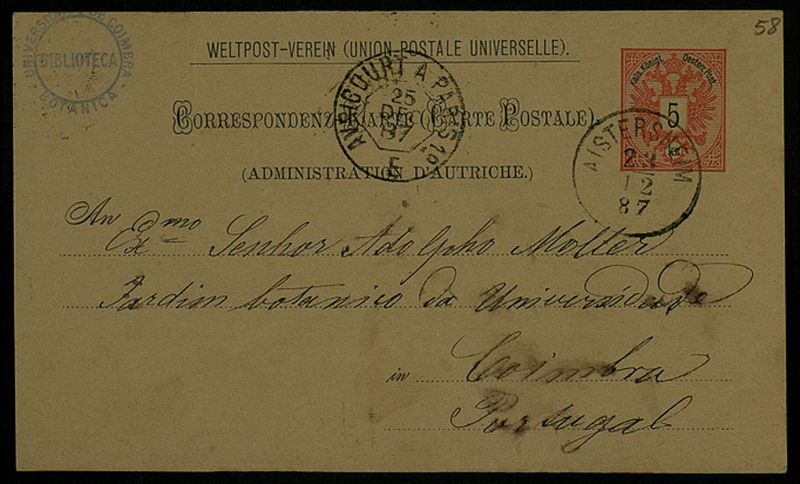 58
UNIVERSIDADE DE COIMBRA
BIBLIOTECA
BOTANICA
WELTPOST-VEREIN (UNION POSTALE UNIVERSELLE).
Kais. Königl. Oesterr. Post
5
Kr
AVRICOURT A PARIS 1º
25
DEC
87
E
CORRESPONDENZ-KARTE (CARTE POSTALE).
(ADMINISTRATION D'AUTRICHE.)
AISTERSHEIM
12
87
An Exmo Senhor Adolpho Moller
Jardim botanico da Universidade
in Coimbra
Portugal